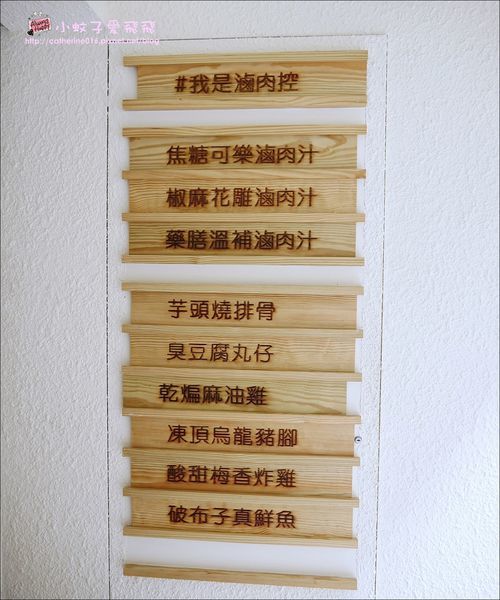 Always Happy
小蚊子愛飛飛
http://catherine016.pixnet.net/blog
#我是滷肉控
焦糖可樂滷肉汁
椒麻花雕滷肉汁
藥膳溫補滷肉汁
芋頭燒排骨
臭豆腐丸仔
乾煸麻油雞
凍頂烏龍豬腳
酸甜梅香炸雞
破布子真鮮魚